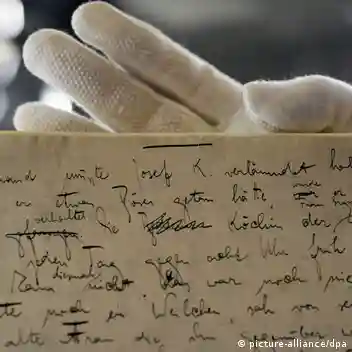 mand musste Josef K. verläumdet hab
er etwas Böses getan hätte, wurde er
verhaftet
gefangen. Die Köchin der
jeden Tag gegen acht Uhr früh
diesmal
Kam nicht. Das war noch nie
te noch ein Weilchen, sah von se
alte Frau die ihm gegenüber w
© picture-alliance/dpa